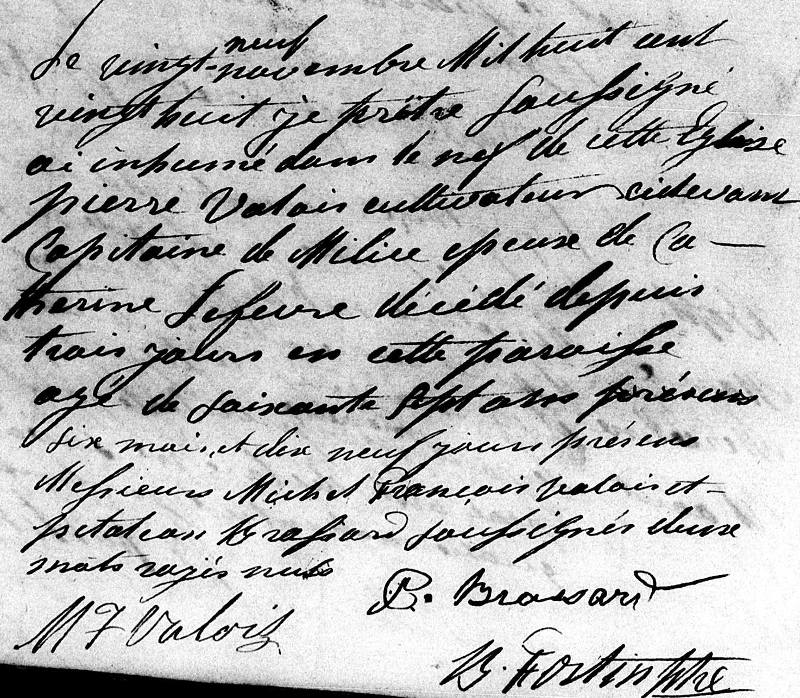 Le vingt-neuf
novembre Mil huit cent
vingt huit je prêtre soussigné
ai inhumé dans la nef de cette Eglise
pierre Valois cultivateur cidevant
Capitaine de Milice epoux de Ca-
therine Lefevre décédé depuis
trois jours en cette paroisse
agé de soixante sept ans présens
six mois et dix neuf jours présens
Messieurs Michel François Valois et
Brassard soussignés deux
mots rayés nuls
P. Brassard
M F Valois
B. Fortin ptre